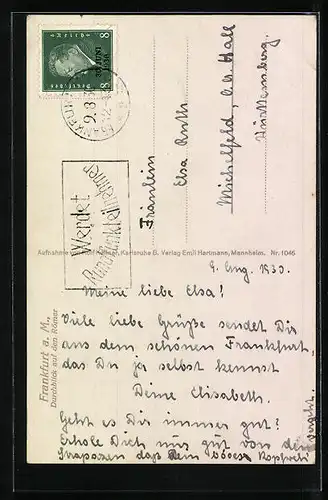 8 8
30. JUNI
1930
Deutsches
Reich
FRANKFURT
9.8.30
Werdet
Rundfunkteilnehmer
Fräulein
Elsa Ruth
Michelfeld, b/ Hall
Württemberg.
Karlsruhe B. Verlag Emil Hartmann, Mannheim. Nr. 1046
Frankfurt a. M.,
Durchblick auf den Römer
9. Aug. 1930.
Meine liebe Elsa!
Viele liebe Grüße sendet Dir
aus dem schönen Frankfurt
das Du ja selbst kennst
Deine Elisabeth.
Geht es Dir immer gut?
Erhole Dich nur gut von den
Strapazen daß dem Kopfweh
vergeht.